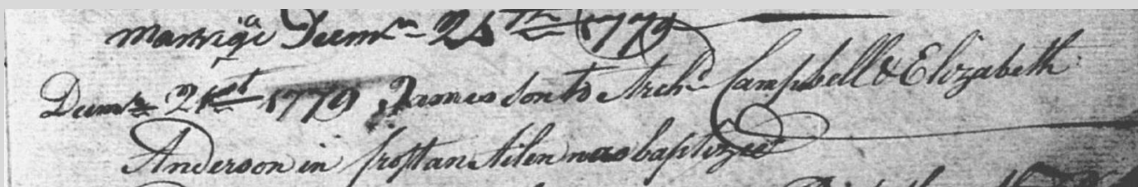 marriage Decmr 25th 1779
Decmr 21st 1779 James son to Archd Campbell & Elizabeth
Anderson in was baptized